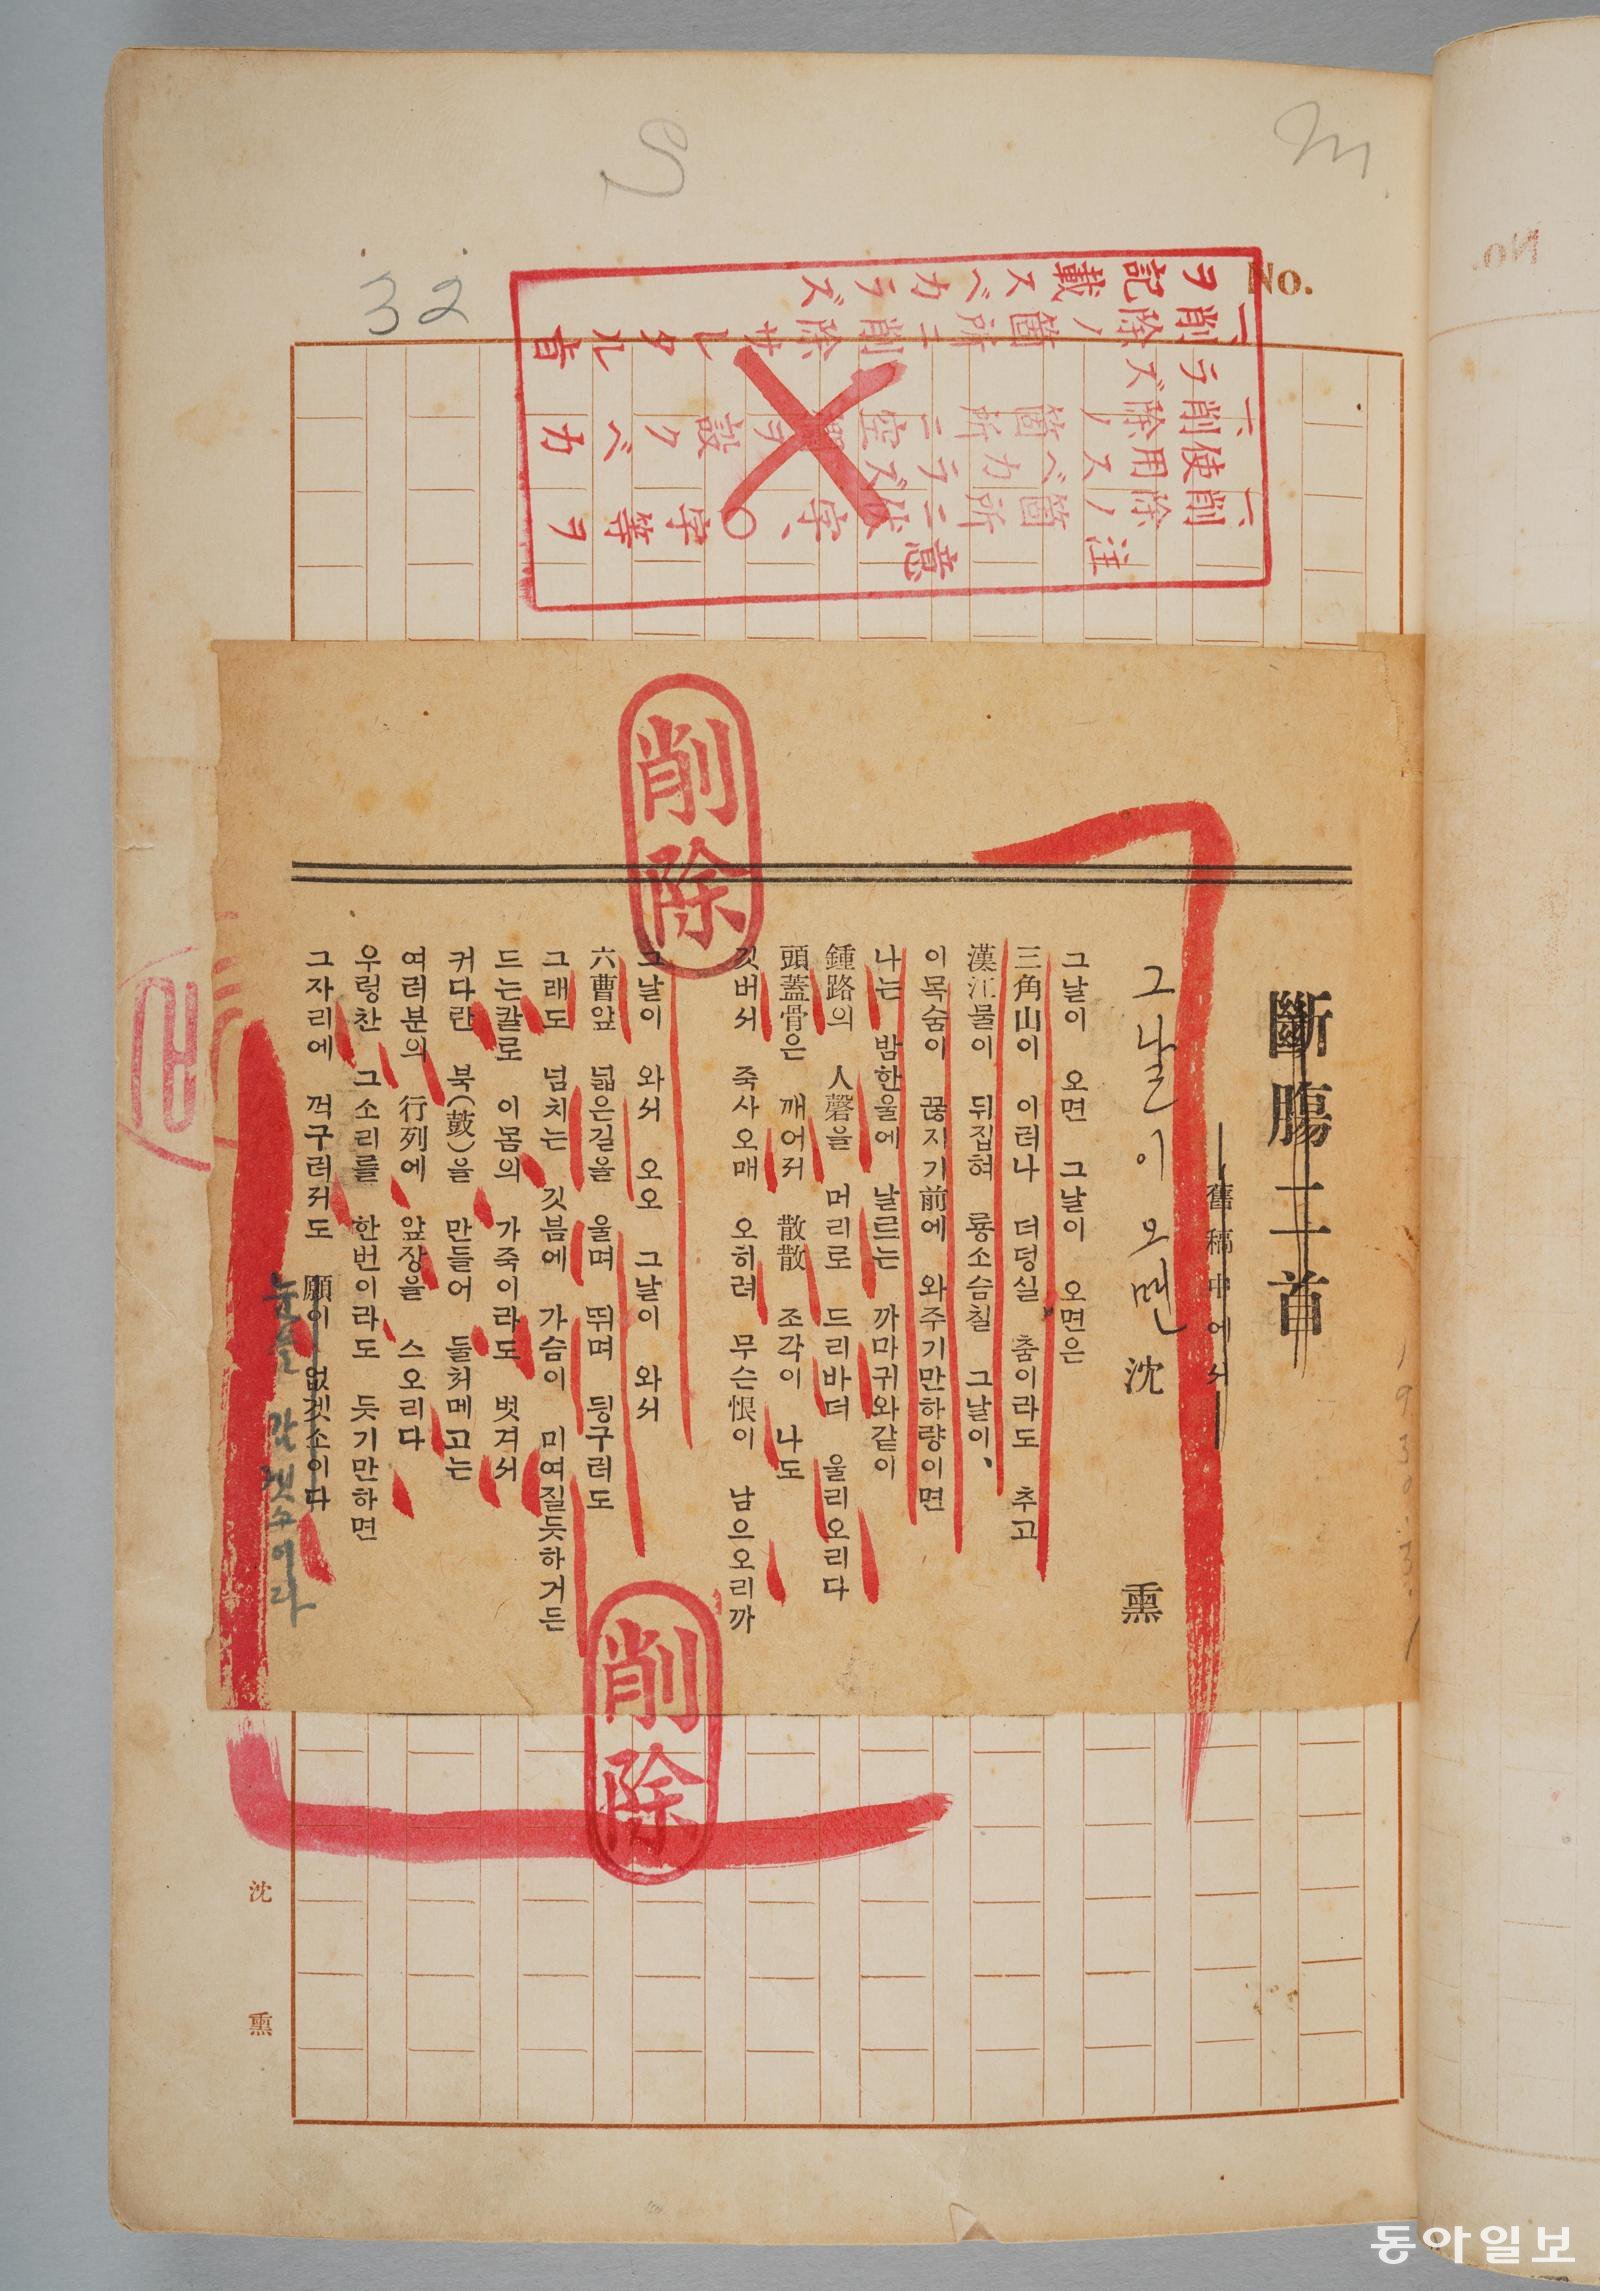 No.
32
S
m
注意
一、削除ノ箇所ニ伏字、〇字等ヲ
使用スベカラズ
一、削除ノ箇所ニ空欄ヲ設クベカ
ラズ
一、削除ノ箇所ニ削除サレタル旨
ヲ記載スベカラズ
斷膓二首
―舊稿中에서―
그날이 오면
沈 熏
그날이 오면 그날이 오면은
三角山이 이러나 더덩실 춤이라도 추고
漢江물이 뒤집혀 룡소슴칠 그날이、
이목숨이 끊지기前에 와주기만하량이면
나는 밤한울에 날르는 까마귀와같이
鍾路의 人磬을 머리로 드리바더 울리오리다
頭蓋骨은 깨어저 散散 조각이 나도
깃버서 죽사오매 오히려 무슨恨이 남으오리까
그날이 와서 오오 그날이 와서
六曹앞 넓은길을 울며 뛰며 딍구러도
그래도 넘치는 깃븜에 가슴이 미여질듯하거든
드는칼로 이몸의 가죽이라도 벗겨서
커다란 북(鼓)을 만들어 둘처메고는
여러분의 行列에 앞장을 스오리다
우렁찬 그소리를 한번이라도 듯기만하면
그자리에 꺽구러저도 願이 없겟소이다
눈을 감겟소이다
削除
削除
1930.3.1
沈 熏
No.
동아일보